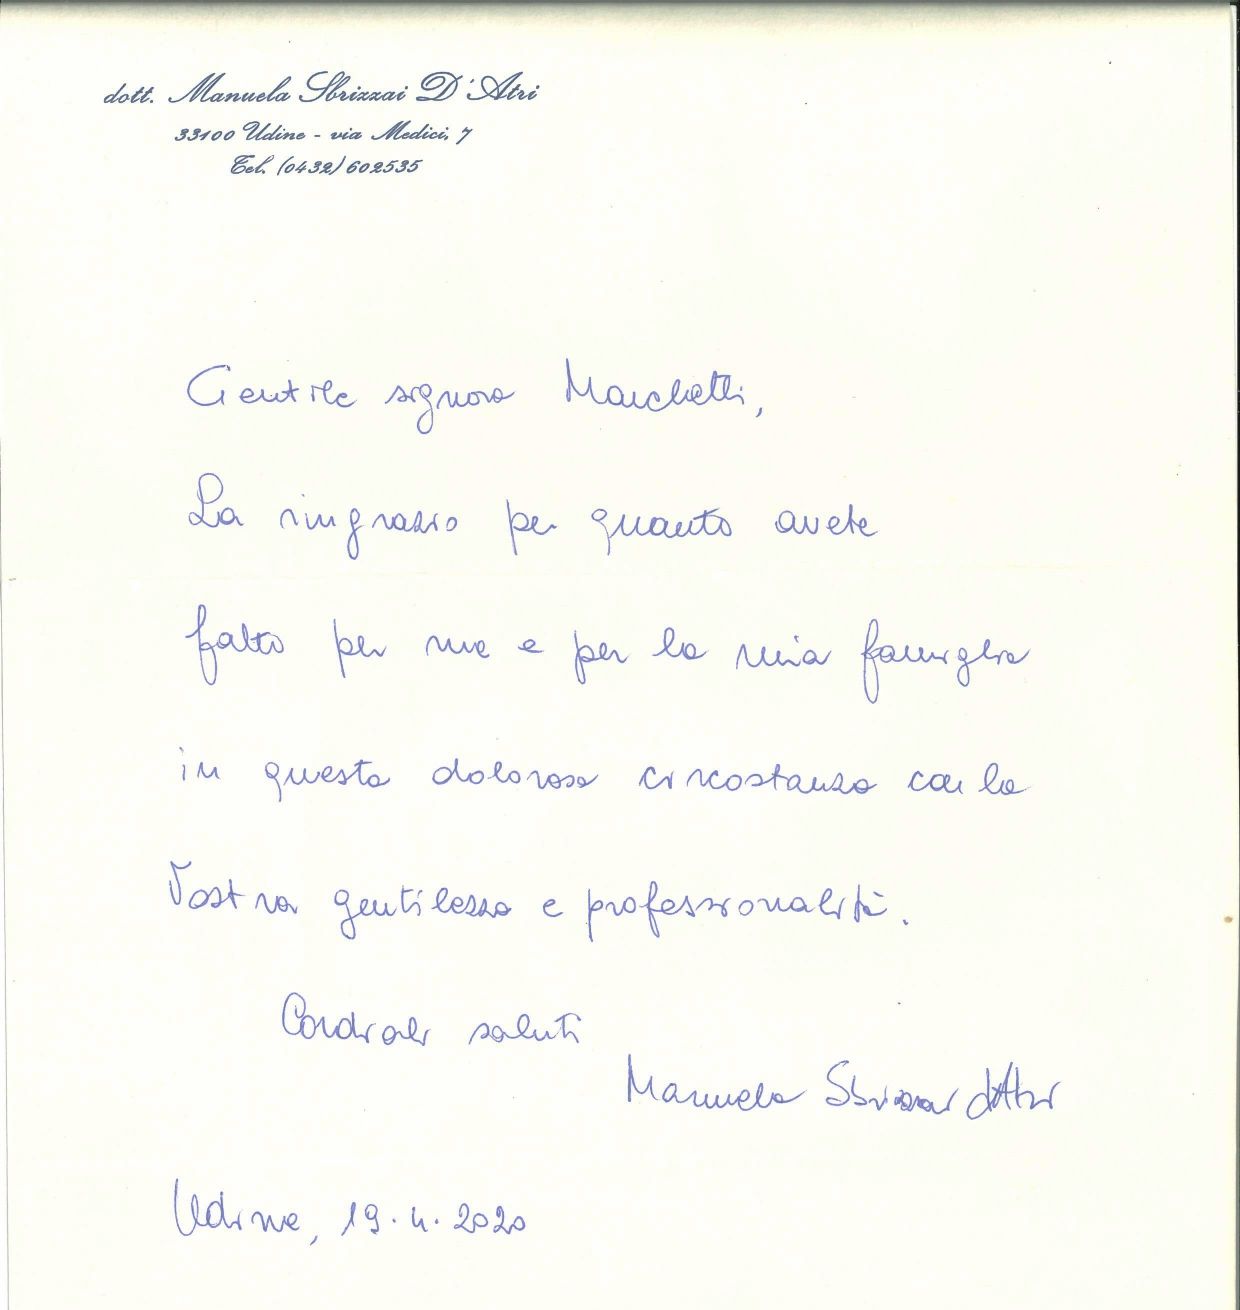 dott. Manuela Sbrizzai D'Atri
33100 Udine - via Medici, 7
Tel. (0432) 602535
Gentile signora Marchetti,
La ringrazio per quanto avete
fatto per me e per la mia famiglia
in questa dolorosa circostanza con la
Vostra gentilezza e professionalità.
Cordiali saluti
Manuela Sbrizzai d'Atri
Udine, 19.4.2020